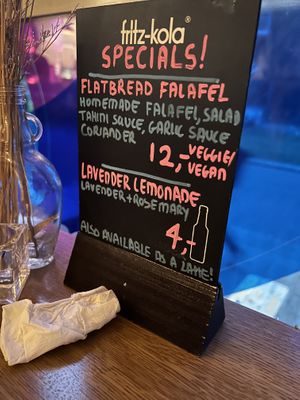 fritz-kola®
SPECIALS!
FLATBREAD FALAFEL
HOMEMADE FALAFEL, SALAD
TAHINI SAUCE, GARLIC SAUCE
CORIANDER
12,- VEGGIE/
VEGAN
LAVENDER LEMONADE
LAVENDER + ROSEMARY
4,-
ALSO AVAILABLE AS A